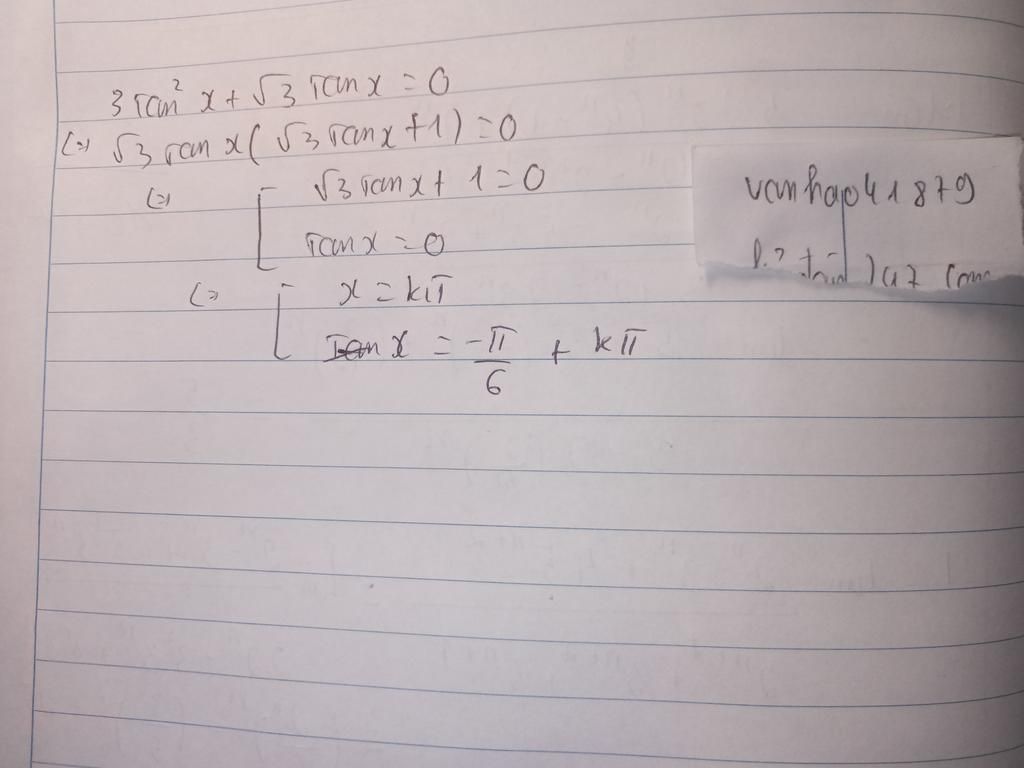 3 tan² x + √3 tan x = 0
(=) √3 tan x ( √3 tan x + 1 ) = 0
(=) [ √3 tan x + 1 = 0
tan x = 0
(=) [ x = kπ
x = -π/6 + kπ
vanhao41879